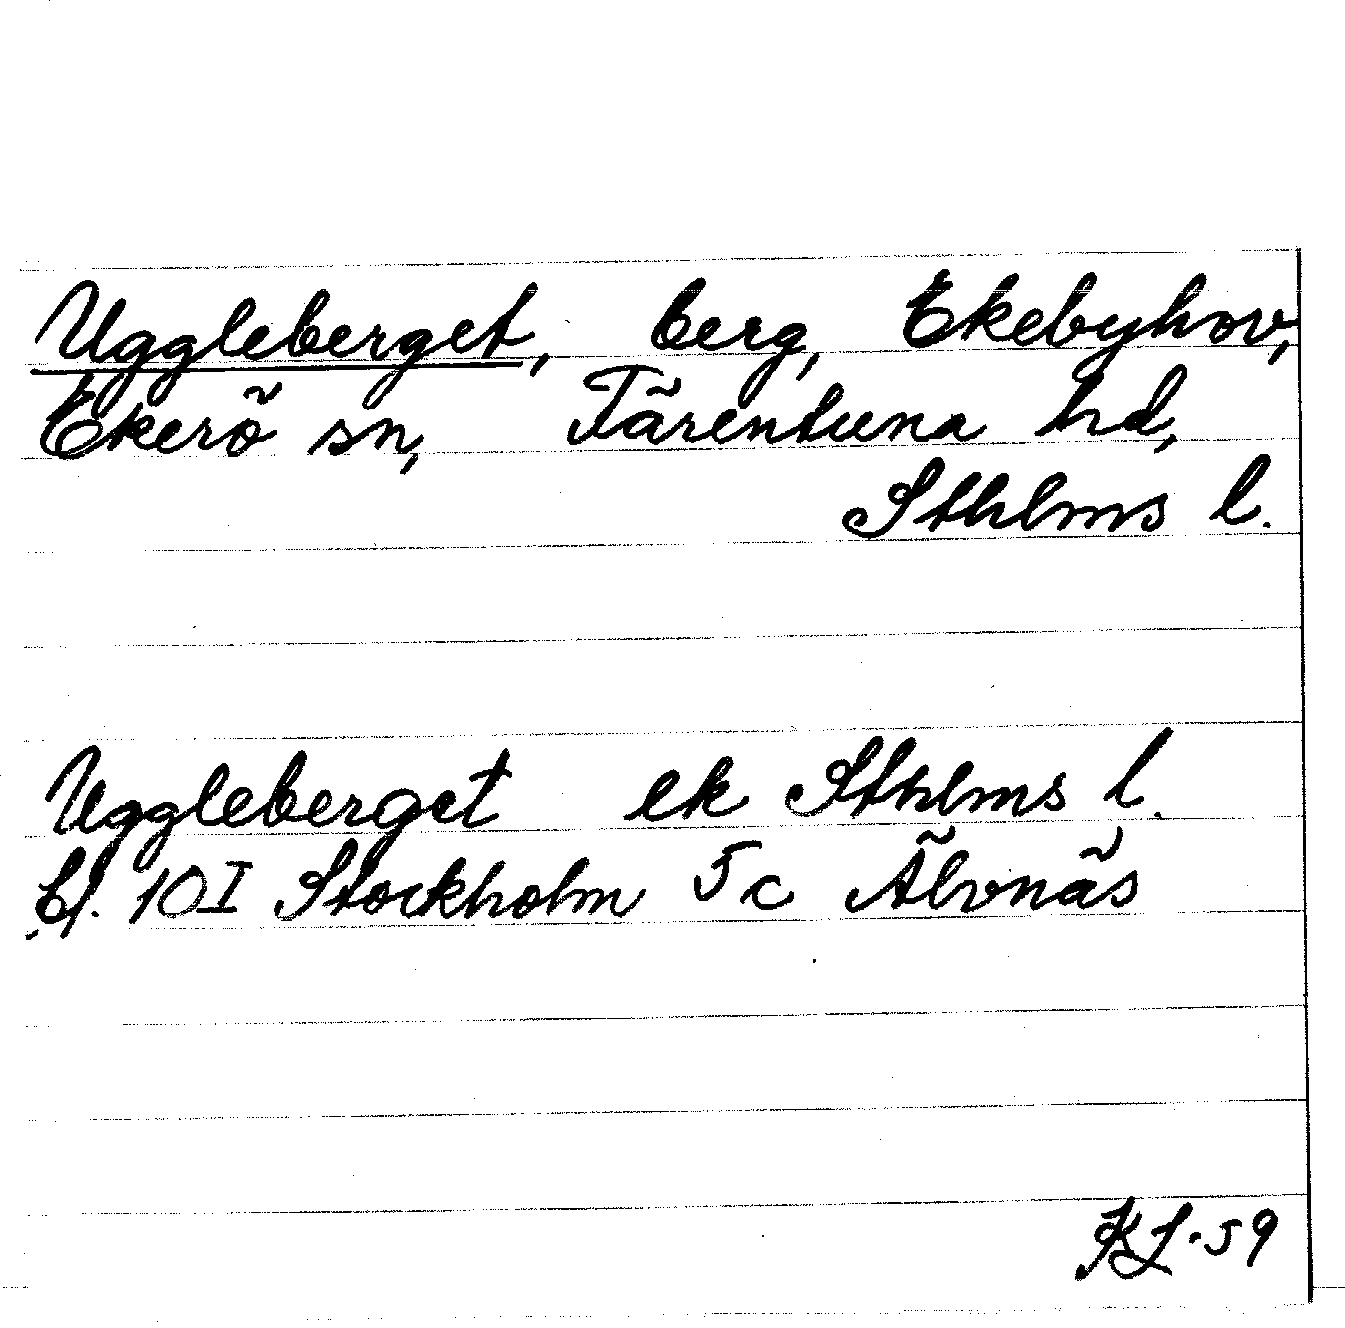 Uggleberget, berg, Ekebyhov,
Ekerö sn, Färentuna hd,
Sthlms l.
Uggleberget ek Sthlms l.
bl. 10I Stockholm 5c Älvnäs
KL-59